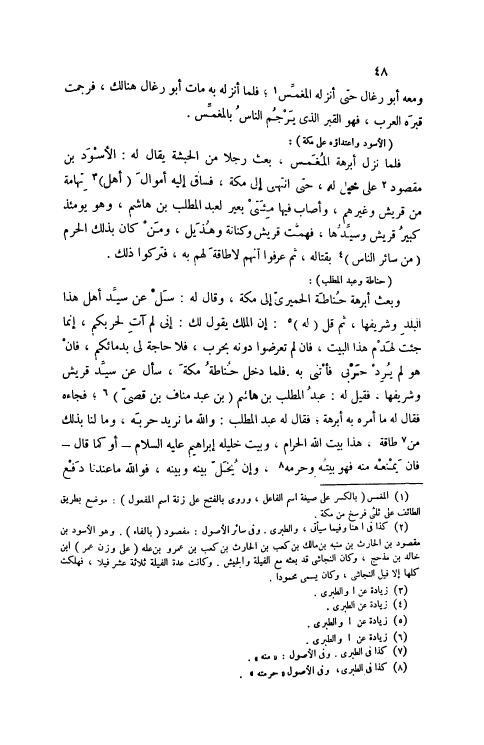 ٤٨
ومعه أبو رغال حتى أنزله المغمِّس١ ؛ فلما أنزله به مات أبو رغال هنالك ، فرجمت
قبرَه العرب ، فهو القبر الذى يَرْجُم الناسُ بالمغمِّس .
( الأسود واعتداؤه على مكة ) :
فلما نزل أبرهة المُغَمس ، بعث رجلا من الحبشة يقال له : الأسْوَد بن
مقصود٢ على خيل له ، حتى انتهى إلى مكة ، فساق إليه أموالَ ( أهل )٣ تِهامة
من قريش وغيرهم ، وأصاب فيها مِئَتَىْ بعير لعبد المطلب بن هاشم ، وهو يومئذ
كبيرُ قريش وسيِّدُها ، فهمَّت قريش وكنانة وهُذَيل ، ومَنْ كان بذلك الحرم
( من سائر الناس )٤ بقتاله ، ثم عرفوا أنهم لاطاقةَ لهم به ، فتركوا ذلك .
( حناطة وعبد المطلب ) :
وبعث أبرهة حُناطةَ الحميرىّ إلى مكة ، وقال له : سَلْ عن سيِّد أهل هذا
البلد وشريفها ، ثم قل ( له )٥ : إن الملك يقول لك : إنى لم آتِ لحربكم ، إنما
جئت لهَدْم هذا البيت ، فان لم تعرضوا دونه بحرب ، فلا حاجة لى بدمائكم ، فانْ
هو لم يُرِدْ حَرْبى فأْتنى به . فلما دخل حُناطةُ مكةَ ، سأل عن سيِّد قريش
وشريفها . فقيل له : عبدُ المطلب بن هاشم ( بن عبد مناف بن قصىّ )٦ ؛ فجاءه
فقال له ما أمره به أبرهة ؛ فقال له عبد المطلب : والله ما نريد حربَه ، وما لنا بذلك
من٧ طاقة ، هذا بيت الله الحرام ، وبيت خليله إبراهيم عليه السلام ــ أو كما قال ــ
فان يَمْنَعْه منه فهو بيتُه وحرمه٨ ، وإن يُخَلّ بينه وبينه ، فوالله ماعندنا دَفْع
(١) المغمس ( بالكسر على صيغة اسم الفاعل ، وروى بالفتح على زنة اسم المفعول ) : موضع بطريق
الطائف على ثلثى فرسخ من مكة .
(٢) كذا فى ا هنا وفيما سيأتى ، والطبرى . وفى سائر الأصول : مفصود ( بالفاء ) . وهو الأسود بن
مقصود بن الحارث بن منبه بن مالك بن كعب بن الحارث بن كعب بن عمرو بن عله ( على وزن عمر ) ابن
خالد بن مذحج ، وكان النجاشى قد بعثه مع الفيلة والجيش . وكانت عدة الفيلة ثلاثة عشر فيلا ، فهلكت
كلها إلا فيل النجاشى ، وكان يسمى محمودا .
(٣) زيادة عن ا والطبرى .
(٤) زيادة عن الطبرى .
(٥) زيادة عن ا والطبرى .
(٦) زيادة عن ا والطبرى .
(٧) كذا فى الطبرى . وفى الأصول : « منه » .
(٨) كذا فى الطبرى، وفى الأصول « حرمته » .